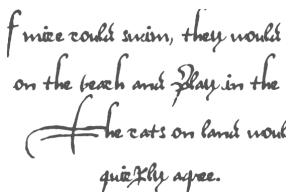 f mice could swim, they would
on the beach and Play in the
The cats on land woul
quickly agree.